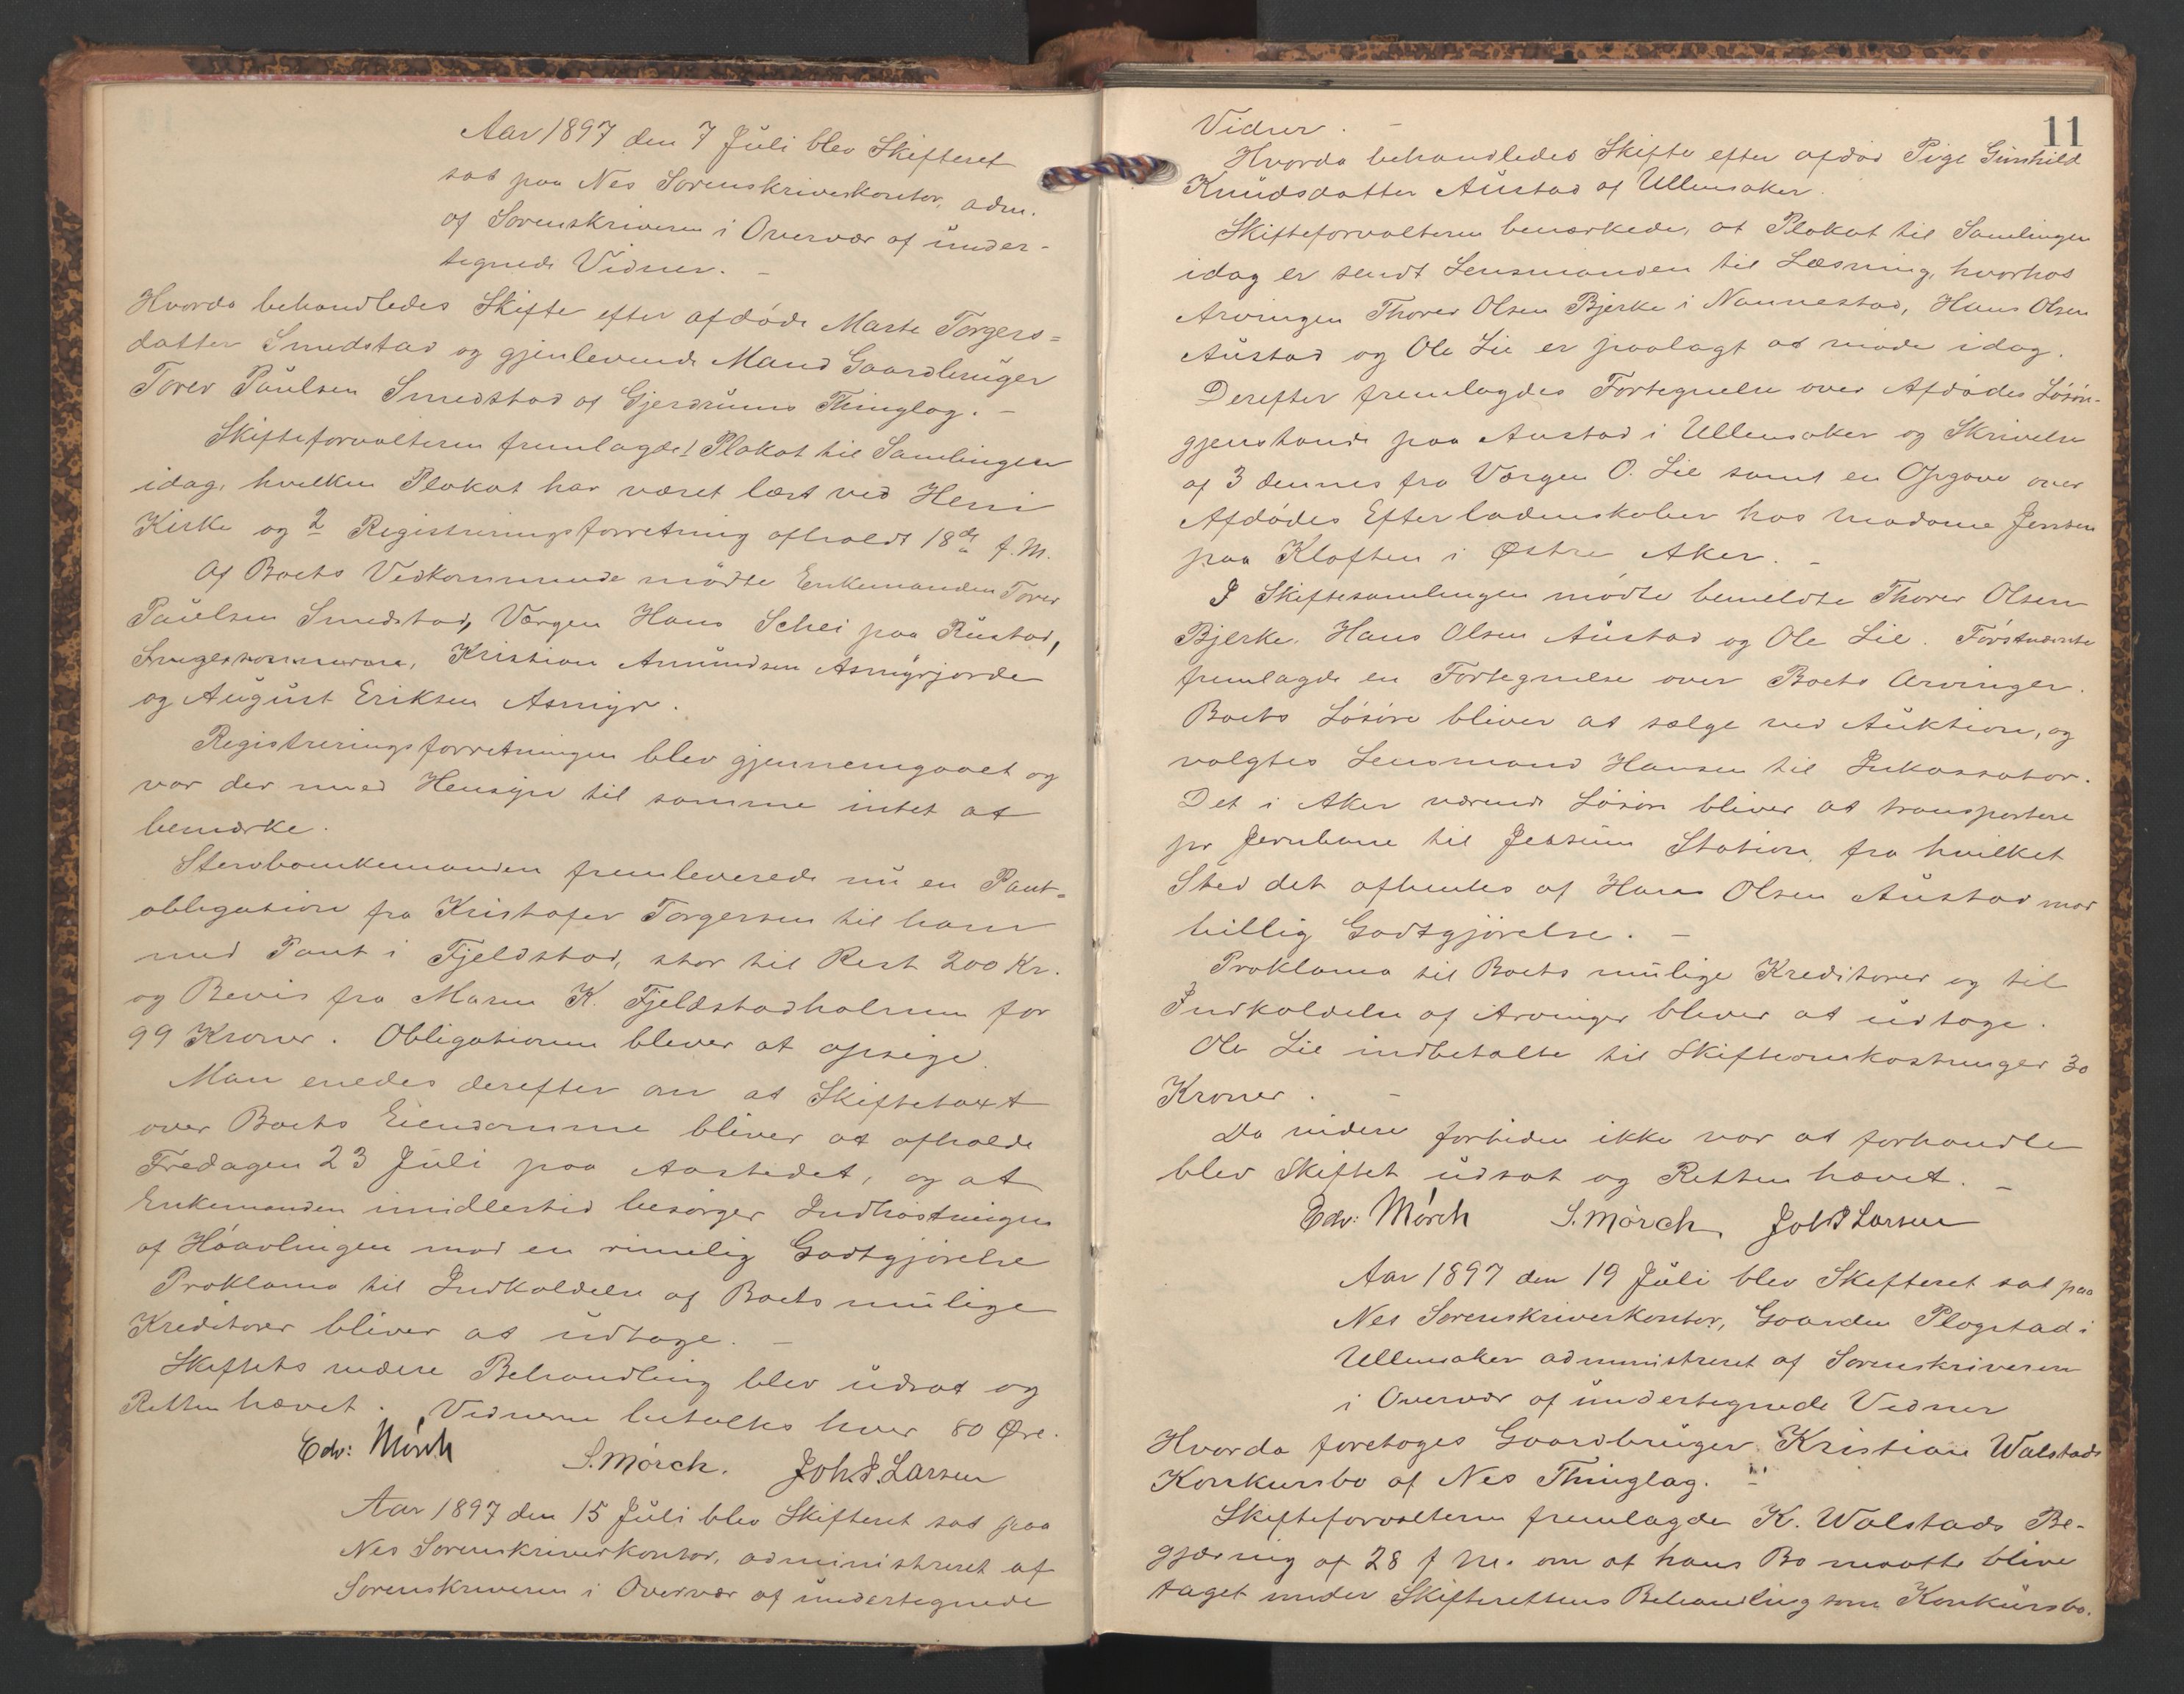 Aar 1897 den 7 Juli blev Skifteret
sat paa Nes Sorenskriverkontor, adm.
af Sorenskriveren i Overvær af under-
tegnede Vidner. –
Hvorda behandledes Skifte efter afdøde Marte Torgers=
datter Smedstad og gjenlevende Mand Gaardbruger
Torer Paulsen Smedstad af Gjerdrums Thinglag. –
Skifteforvalteren fremlagde 1 Plakat til Samlingen
idag, hvilken Plakat har været læst ved Heni
Kirke og 2 Registreringsforretning afholdt 18de f. M.
Af Boets Vedkommende mødte Enkemanden Torer
Paulsen Smedstad, Værgen Hans Schei paa Rustad,
Kristian Amundsen Asmyrjorde
og August Eriksen Asmyr.
Registreringsforretningen blev gjennemgaaet og
var der med Hensyn til samme intet at
bemærke.
Stervboenkemanden fremleverede nu en Pant=
obligation fra Kristofer Torgersen til ham
med Pant i Fjeldstad, stor til Rest 200 Kr.
og Bevis fra Maren K. Fjeldstadholmen for
99 Kroner. Obligationen bliver at opsige.
Man enedes derefter om at Skiftetaxt
over Boets Eiendomme bliver at afholde
Fredagen 23 Juli paa Aastedet, og at
Enkemanden imidlertid besørger Indhøstningen
af Høavlingen mod en rimelig Godtgjørelse
Proklama til Indkaldelse af Boets mulige
Kreditorer bliver at udtage. –
Skiftets videre Behandling blev udsat og
Retten hævet. Vidnerne betaltes hver 80 Øre.
Edv: Mørch S. Mørch. Joh. P. Larsen
Aar 1897 den 15 Juli blev Skifteret sat paa
Nes Sorenskriverkontor, administreret af
Sorenskriveren i Overvær af undertegnede
11
Vidner. –
Hvorda behandledes Skifte efter afdød Pige Gunhild
Knudsdatter Austad af Ullensaker.
Skifteforvalteren bemærkede, at Plakat til Samlingen
idag er sendt Lensmanden til Læsning, hvorhos
Arvingen Thorer Olsen Bjerke i Nannestad, Hans Olsen
Austad og Ole Lie er paalagt at møde idag.
Derefter fremlagdes Fortegnelse over Afdødes Løsøre-
gjenstande paa Austad i Ullensaker og Skrivelse
af 3 dennes fra Værgen O. Lie samt en Opgave over
Afdødes Efterladenskaber hos Madame Jensen
paa Kløften i Østre Aker. –
I Skiftesamlingen mødte bemeldte Thorer Olsen
Bjerke, Hans Olsen Austad og Ole Lie. Førstnævnte
fremlagde en Fortegnelse over Boets Arvinger.
Boets Løsøre bliver at sælge ved Auktion, og
valgtes Lensmand Hansen til Inkassator.
Det i Aker værende Løsøre bliver at transportere
pr Jernbane til Jessum Station, fra hvilket
Sted det afhentes af Hans Olsen Austad mod
billig Godtgjørelse. –
Proklama til Boets mulige Kreditorer og til
Indkaldelse af Arvinger bliver at udtage.
Ole Lie indbetalte til Skifteomkostninger 30
Kroner. –
Da videre fortiden ikke var at forhandle
blev Skiftet udsat og Retten hævet. –
Edv: Mørch S. Mørch Joh P Larsen
Aar 1897 den 19 Juli blev Skifteret sat paa
Nes Sorenskriverkontor, Gaarden Plogstad i
Ullensaker administreret af Sorenskriveren
i Overvær af undertegnede Vidner
Hvorda foretoges Gaardbruger Kristian Walstads
Konkursbo af Nes Thinglag. –
Skifteforvalteren fremlagde K. Walstads Be-
gjæring af 28 f M. om at hans Bo maatte blive
taget under Skifterettens Behandling som Konkursbo.